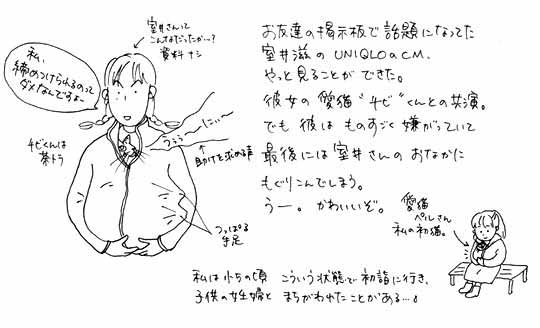 室井さんって
こんなだったか…?
資料ナシ
私、
締めつけられるのって
ダメなんですよー
チビくんは
茶トラ
うぅぅ〜にぃ〜
↑助けを求める声
つっぱる
手足
お友達の掲示板で話題になってた
室井滋のUNIQLOのCM、
やっと見ることができた。
彼女の愛猫“チビ”くんとの共演。
でも彼はものすごく嫌がっていて
最後には室井さんのおなかに
もぐりこんでしまう。
うー。かわいいぞ。
愛猫
ペルさん
私の初猫。
私は小5の頃 こういう状態で初詣に行き、
子供の妊婦とまちがわれたことがある…。